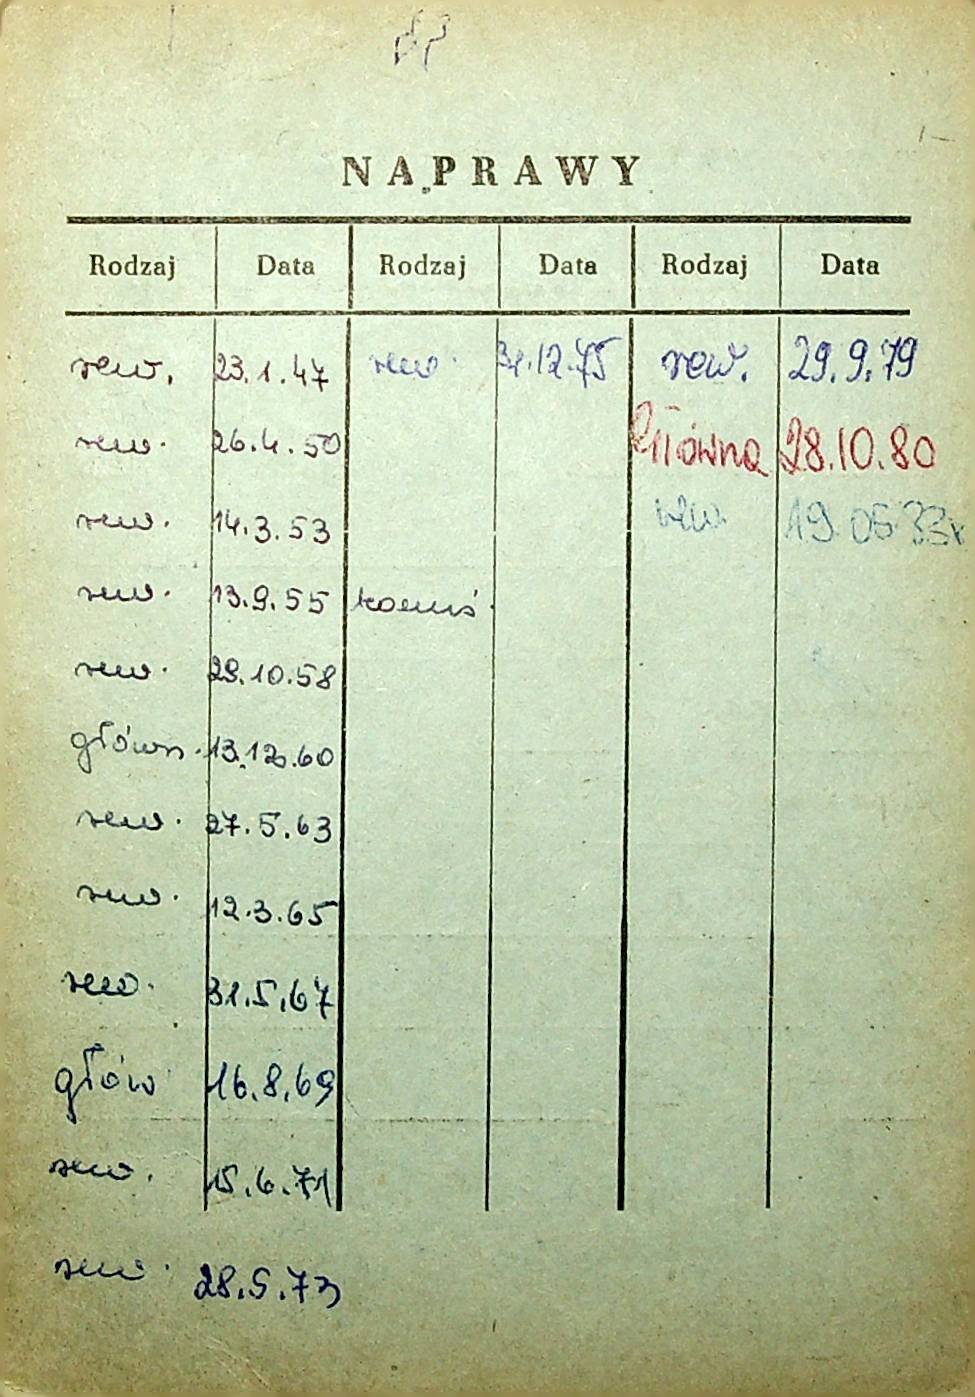 NAPRAWY
Rodzaj Data Rodzaj Data Rodzaj Data
rew. 23.1.47 rew. 31.12.75 rew. 29.9.79
rew. 26.4.50 Główna 28.10.80
rew. 14.3.53 rew. 19.05
rew. 13.9.55
rew. 29.10.58
główn. 13.12.60
rew. 27.5.63
rew. 12.3.65
rew. 31.5.67
głów 16.8.69
rew. 15.6.71
rew. 28.5.73